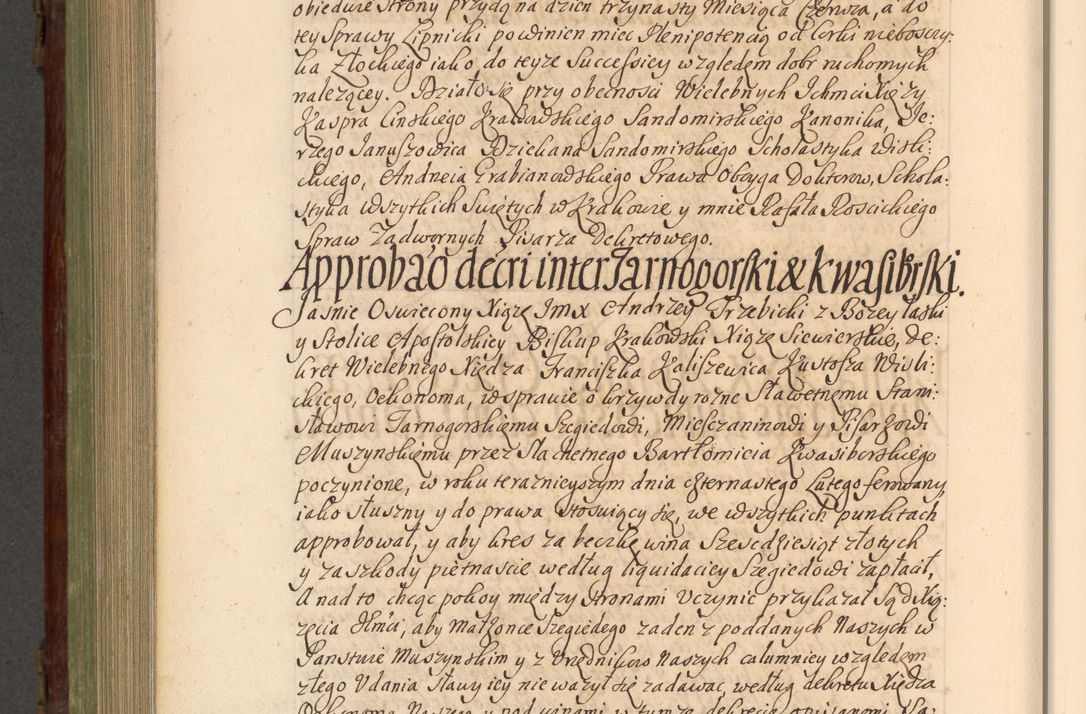 obiedwie strony przydą na dzien trzynasty Miesiąca Czerwca, a do
tey Sprawy Lipnicki powinien miec Plenipotencią od Corki nieboszczy:
ka Złockiego iako do teyze Successiey względem dobr ruchomych
należącey. Działo się przy obecnosci Wielebnych Ichmci Xięży
Kaspra Cinskiego Krakowskiego Sandomirskiego Kanonika, Je:
rzego Januszowica Dziekana Sandomirskiego Scholastyka Wisli:
ckiego, Andrzeia Grabianowskiego Prawa Oboyga Doktorow, Schola:
styka Wszytkich Swiętych w Krakowie y mnie Rafała Roscickiego
Spraw Zadwornych Pisarza Dekretowego.
Approbaõ decri inter Tarnogorski & Kwasibrski.
Jasnie Oswiecony Xiążę Jmx Andrzey Trzebicki z Bozey łaski
y Stolice Apostolskiey Biskup Krakowski Xiążę Siewierskie, De:
kret Wielebnego Xiędza Franciszka Kaliszewica Kustosza Wisli:
ckiego, Oekonoma, w sprawie o krzywdy rozne Sławetnemu Stani:
sławowi Tarnogorskiemu Szegiedowi, Miesczaninowi y Pisarzowi
Muszynskiemu przez Slachetnego Bartłomieia Kwasiborskiego
poczynione, w roku teraznieyszym dnia czternastego Lutego ferowany,
iako słuszny y do prawa stosuiący się, we wszytkich punktach
approbował, y aby kres za beczkę wina Szescdziesiąt złotych
y za szkody piętnascie według liquidaciey Szegiedowi zapłacił,
A nad to chcąc pokoy między stronami Uczynic przykazał Sąd Xią:
zęcia JEmci, aby Małzonce Szegiedego zaden z poddanych Naszych w
Panstwie Muszynskim y z Urzędnikow Naszych calumniey względem
złego Udania sławy iey nie wazył się zadawac, według dekretu Xiędza